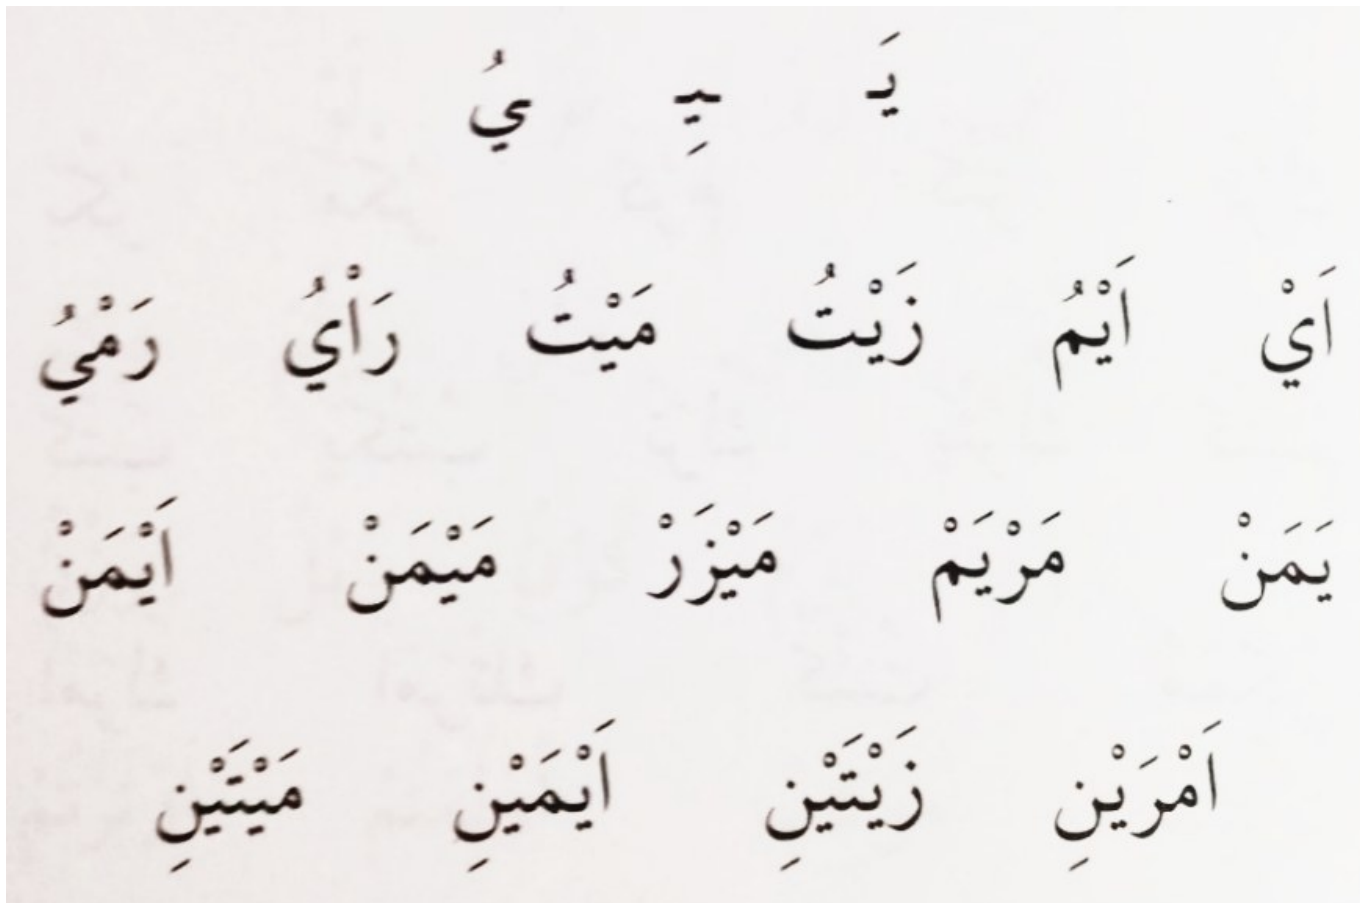 يَـ ـيِـ يُ
اَيْ اَيْمُ زَيْتُ مَيْتُ رَاْيُ رَمْيُ
يَمَنْ مَرْيَمْ مَيْزَرْ مَيْمَنْ اَيْمَنْ
اَمْرَيْنِ زَيْتَيْنِ اَيْمَيْنِ مَيْتَيْنِ